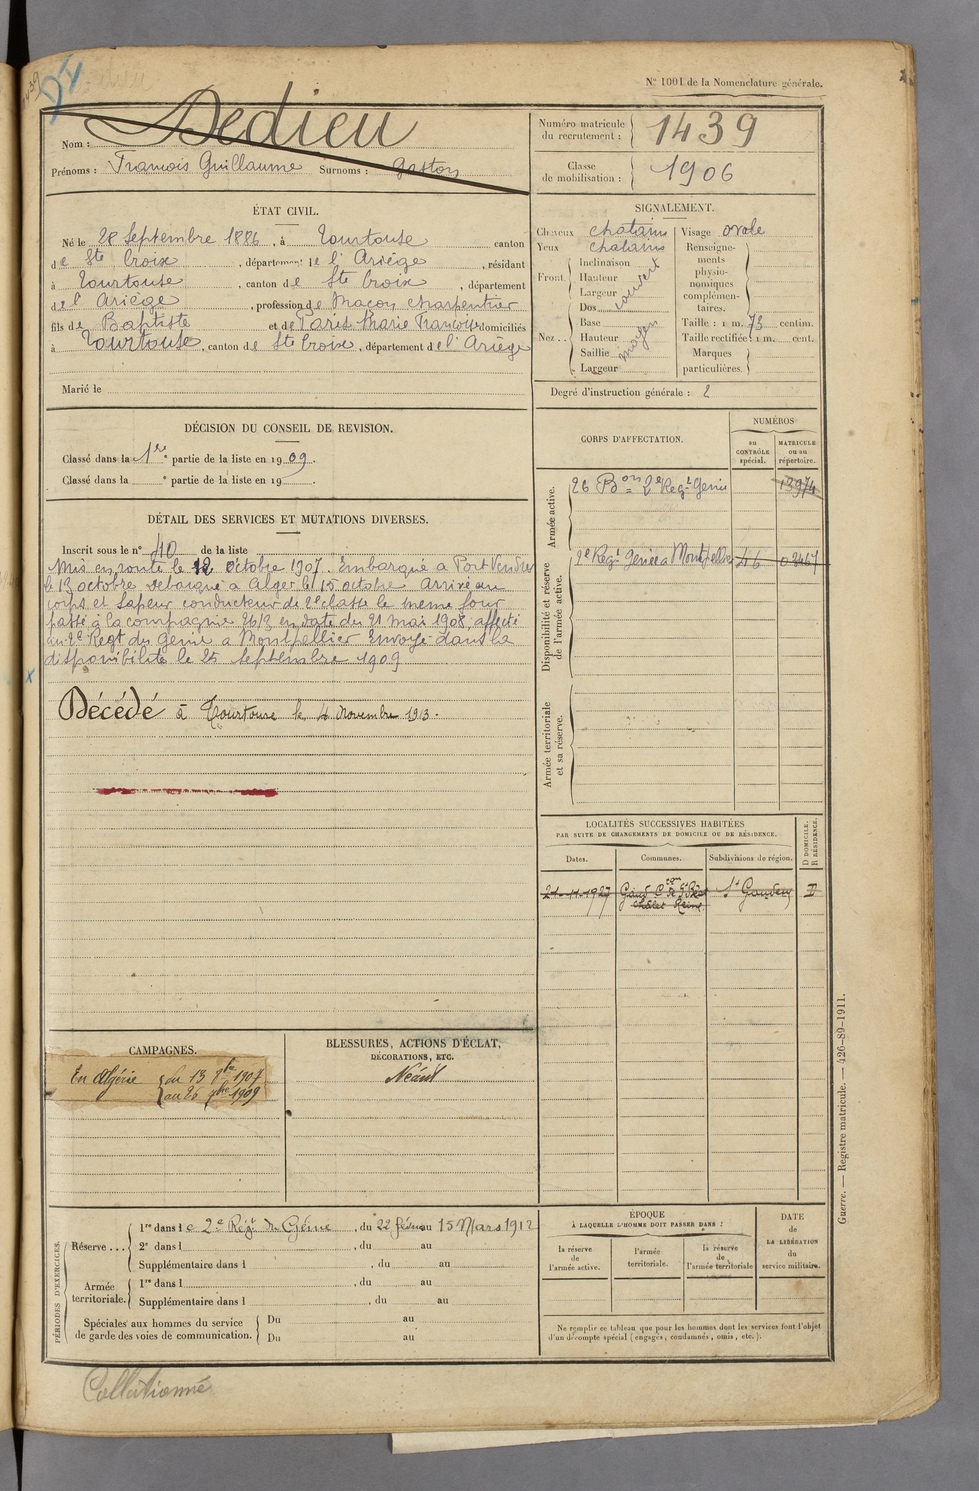 N° 1001 de la Nomenclature générale.
Nom : Dedieu
Prénoms : François Guillaume Surnoms : Gaston
Numéro matricule du recrutement : 1439
Classe de mobilisation : 1906
ÉTAT CIVIL.
Né le 28 Septembre 1886, à Tourtouse canton
de Ste Croix, département de l'Ariège, résidant
à Tourtouse, canton de Ste Croix, département
de l'Ariège, profession de Maçon charpentier
fils de Baptiste et de Paris Marie Françoise domiciliés
à Tourtouse, canton de Ste Croix, département de l'Ariège
Marié le
SIGNALEMENT.
Cheveux chatains
Yeux chatains
Front. Inclinaison
Hauteur
Largeur
Nez.. Dos
Base
Hauteur
Saillie
Largeur
moyen
Visage ovale
Renseignements physionomiques complémentaires.
Taille : 1 m. 73 centim.
Taille rectifiée : 1 m. cent.
Marques particulières.
Degré d'instruction générale : 2
DÉCISION DU CONSEIL DE REVISION.
Classé dans la 1re partie de la liste en 1909.
Classé dans la e partie de la liste en 19 .
DÉTAIL DES SERVICES ET MUTATIONS DIVERSES.
Inscrit sous le n° 40 de la liste
Mis en route le 12 Octobre 1907. Embarqué à Port Vendres
le 13 octobre debarqué a Alger le 15 octobre Arrivé au
corps et Sapeur conducteur de 2e classe le meme jour
passé à la compagnie 26/3 en date du 21 mai 1908, affecté
au 2e Regt du Genie a Montpellier Envoyé dans la
disponibilité le 25 septembre 1909
Décédé à Tourtouse le 4 novembre 1913.
CORPS D'AFFECTATION.
NUMÉROS
au CONTRÔLE spécial.
MATRICULE ou au répertoire.
Armée active.
26 Bon 2e Regt Genie 13974
Disponibilité et réserve de l'armée active.
2e Regt Genie a Montpellier 46 02467
Armée territoriale et sa réserve.
LOCALITÉS SUCCESSIVES HABITÉES
PAR SUITE DE CHANGEMENTS DE DOMICILE OU DE RÉSIDENCE.
Dates.
Communes.
Subdivisions de région.
D DOMICILE. R RÉSIDENCE.
21-11-1927 St Gaudens D
CAMPAGNES.
En Algérie du 13 8bre 1907
au 26 7bre 1909
BLESSURES, ACTIONS D'ÉCLAT,
DÉCORATIONS, ETC.
Néant
PÉRIODES D'EXERCICES.
Réserve ...
1re dans le 2e Régt du Génie, du 22 février au 15 Mars 1912
2e dans l , du au
Supplémentaire dans l , du au
Armée territoriale.
1re dans l , du au
Supplémentaire dans l , du au
Spéciales aux hommes du service de garde des voies de communication.
Du au
Du au
ÉPOQUE
À LAQUELLE L'HOMME DOIT PASSER DANS :
la réserve de l'armée active.
l'armée territoriale.
la réserve de l'armée territoriale
DATE de LA LIBÉRATION du service militaire.
Ne remplir ce tableau que pour les hommes dont les services font l'objet
d'un décompte spécial (engagés, condamnés, omis, etc.).
Guerre. — Registre matricule. — 426-89-1911.
Collationné